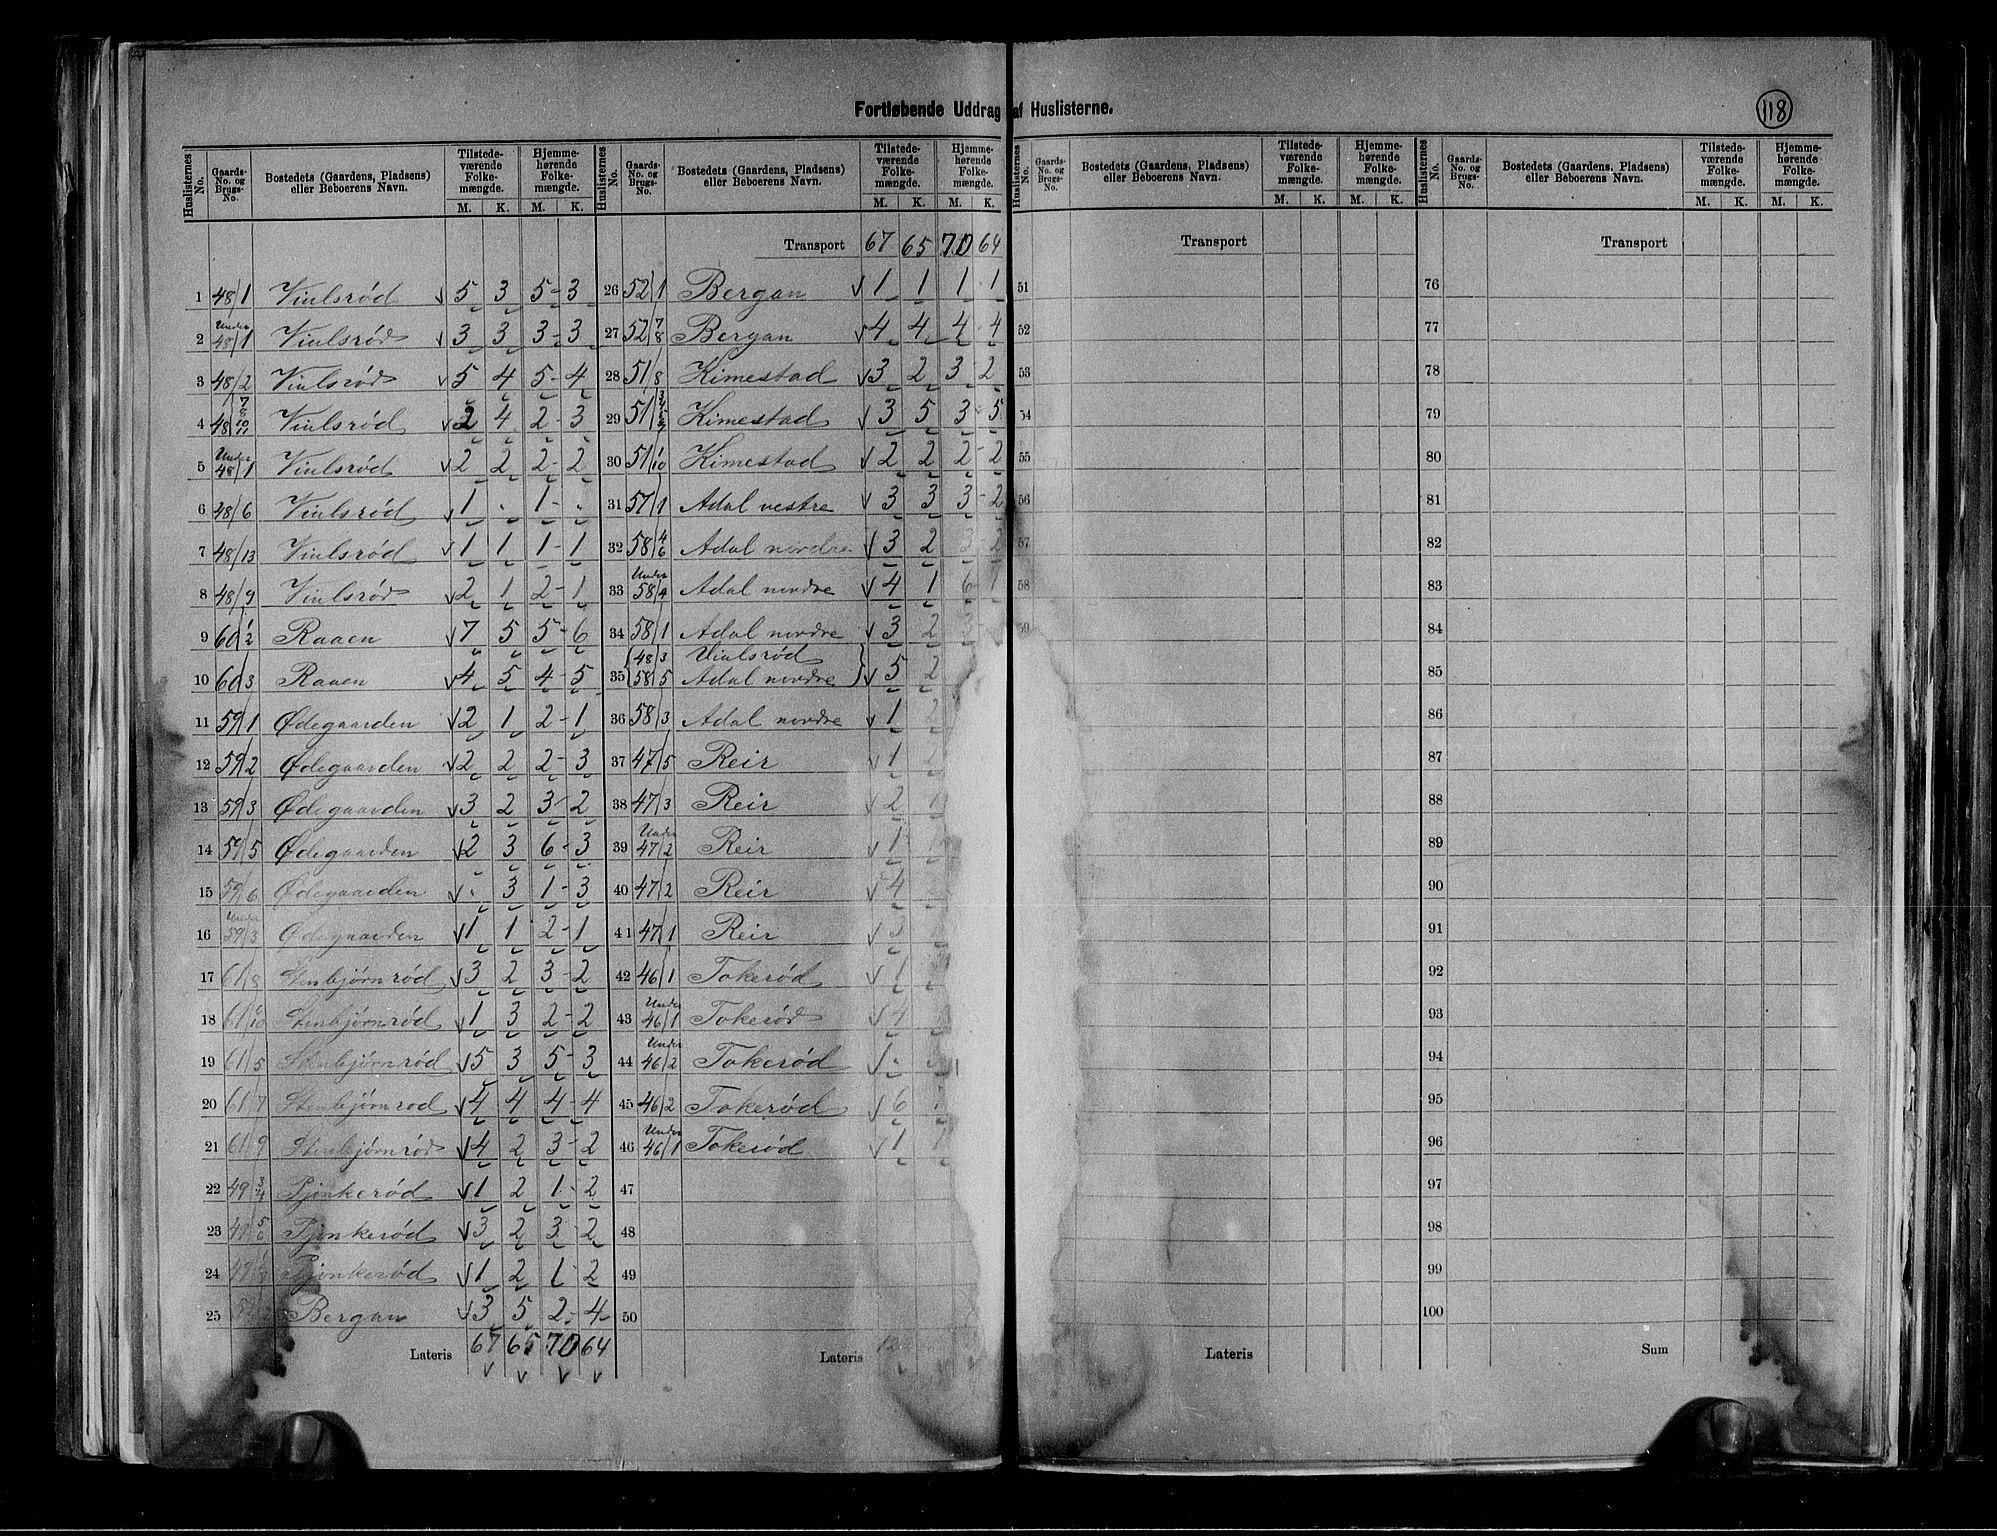 Fortløbende Uddrag af Huslisterne.
118
Huslisternes No. | Gaards-No. og Brugs-No. | Bostedets (Gaardens, Pladsens) eller Beboerens Navn. | Tilstedeværende Folkemængde. M. K. | Hjemmehørende Folkemængde. M. K.
1 48/1 Viulsrød 5 3 5-3
2 Under 48/1 Viulsrød 3 3 3-3
3 48/2 Viulsrød 5 4 5-4
4 48/7 8 10 11 Viulsrød 2 4 2-3
5 Under 48/1 Viulsrød 2 2 2-2
6 48/6 Viulsrød 1 . 1-.
7 48/13 Viulsrød 1 1 1-1
8 48/9 Viulsrød 2 1 2-1
9 60/1 2 Raaen 7 5 5-6
10 60/3 Raaen 4 5 4-5
11 59/1 Ødegaarden 2 1 2-1
12 59/2 Ødegaarden 2 2 2-3
13 59/3 Ødegaarden 3 2 3-2
14 59/5 Ødegaarden 2 3 6-3
15 59/6 Ødegaarden . 3 1-3
16 Under 59/3 Ødegaarden 1 1 2-1
17 61/8 Stenbjørnrød 3 2 3-2
18 61/10 Stenbjørnrød 1 3 2-2
19 61/5 Stenbjørnrød 5 3 5-3
20 61/7 Stenbjørnrød 4 4 4-4
21 61/9 Stenbjørnrød 4 2 3-2
22 49/3 4 Pjønkerød 1 2 1-2
23 49/5 6 Pjønkerød 3 2 3-2
24 49 Pjønkerød 1 2 1-2
25 Bergan 3 5 2-4
Lateris 67 65 70 64
Huslisternes No. | Gaards-No. og Brugs-No. | Bostedets (Gaardens, Pladsens) eller Beboerens Navn. | Tilstedeværende Folkemængde. M. K. | Hjemmehørende Folkemængde. M. K.
Transport 67 65 70 64
26 52/1 Bergan 1 1 1 1
27 52/7 8 Bergan 4 4 4-4
28 51/8 Kimestad 3 2 3-2
29 51 Kimestad 3 5 3-5
30 51/10 Kimestad 2 2 2-2
31 57/1 Adal vestre 3 3 3-2
32 58/4 6 Adal nordre 3 2 3-2
33 Under 58/4 Adal nordre 4 1 6-1
34 58/1 Adal nordre 3 2 3
35 48/3 Viulsrød
58/5 Adal nordre 5 2
36 58/3 Adal nordre 1 2
37 47/5 Reir 1 2
38 47/3 Reir 2 1
39 Under 47/2 Reir 1 1
40 47/2 Reir 4
41 47/1 Reir 3
42 46/1 Tokerød 1
43 Under 46/1 Tokerød 4
44 Under 46/2 Tokerød .
45 46/2 Tokerød 6
46 Under 46/1 Tokerød 1
47
48
49
50
Lateris
Huslisternes No. | Gaards-No. og Brugs-No. | Bostedets (Gaardens, Pladsens) eller Beboerens Navn. | Tilstedeværende Folkemængde. M. K. | Hjemmehørende Folkemængde. M. K.
Transport
51
52
53
54
55
56
57
58
59
Lateris
Huslisternes No. | Gaards-No. og Brugs-No. | Bostedets (Gaardens, Pladsens) eller Beboerens Navn. | Tilstedeværende Folkemængde. M. K. | Hjemmehørende Folkemængde. M. K.
Transport
76
77
78
79
80
81
82
83
84
85
86
87
88
89
90
91
92
93
94
95
96
97
98
99
100
Sum